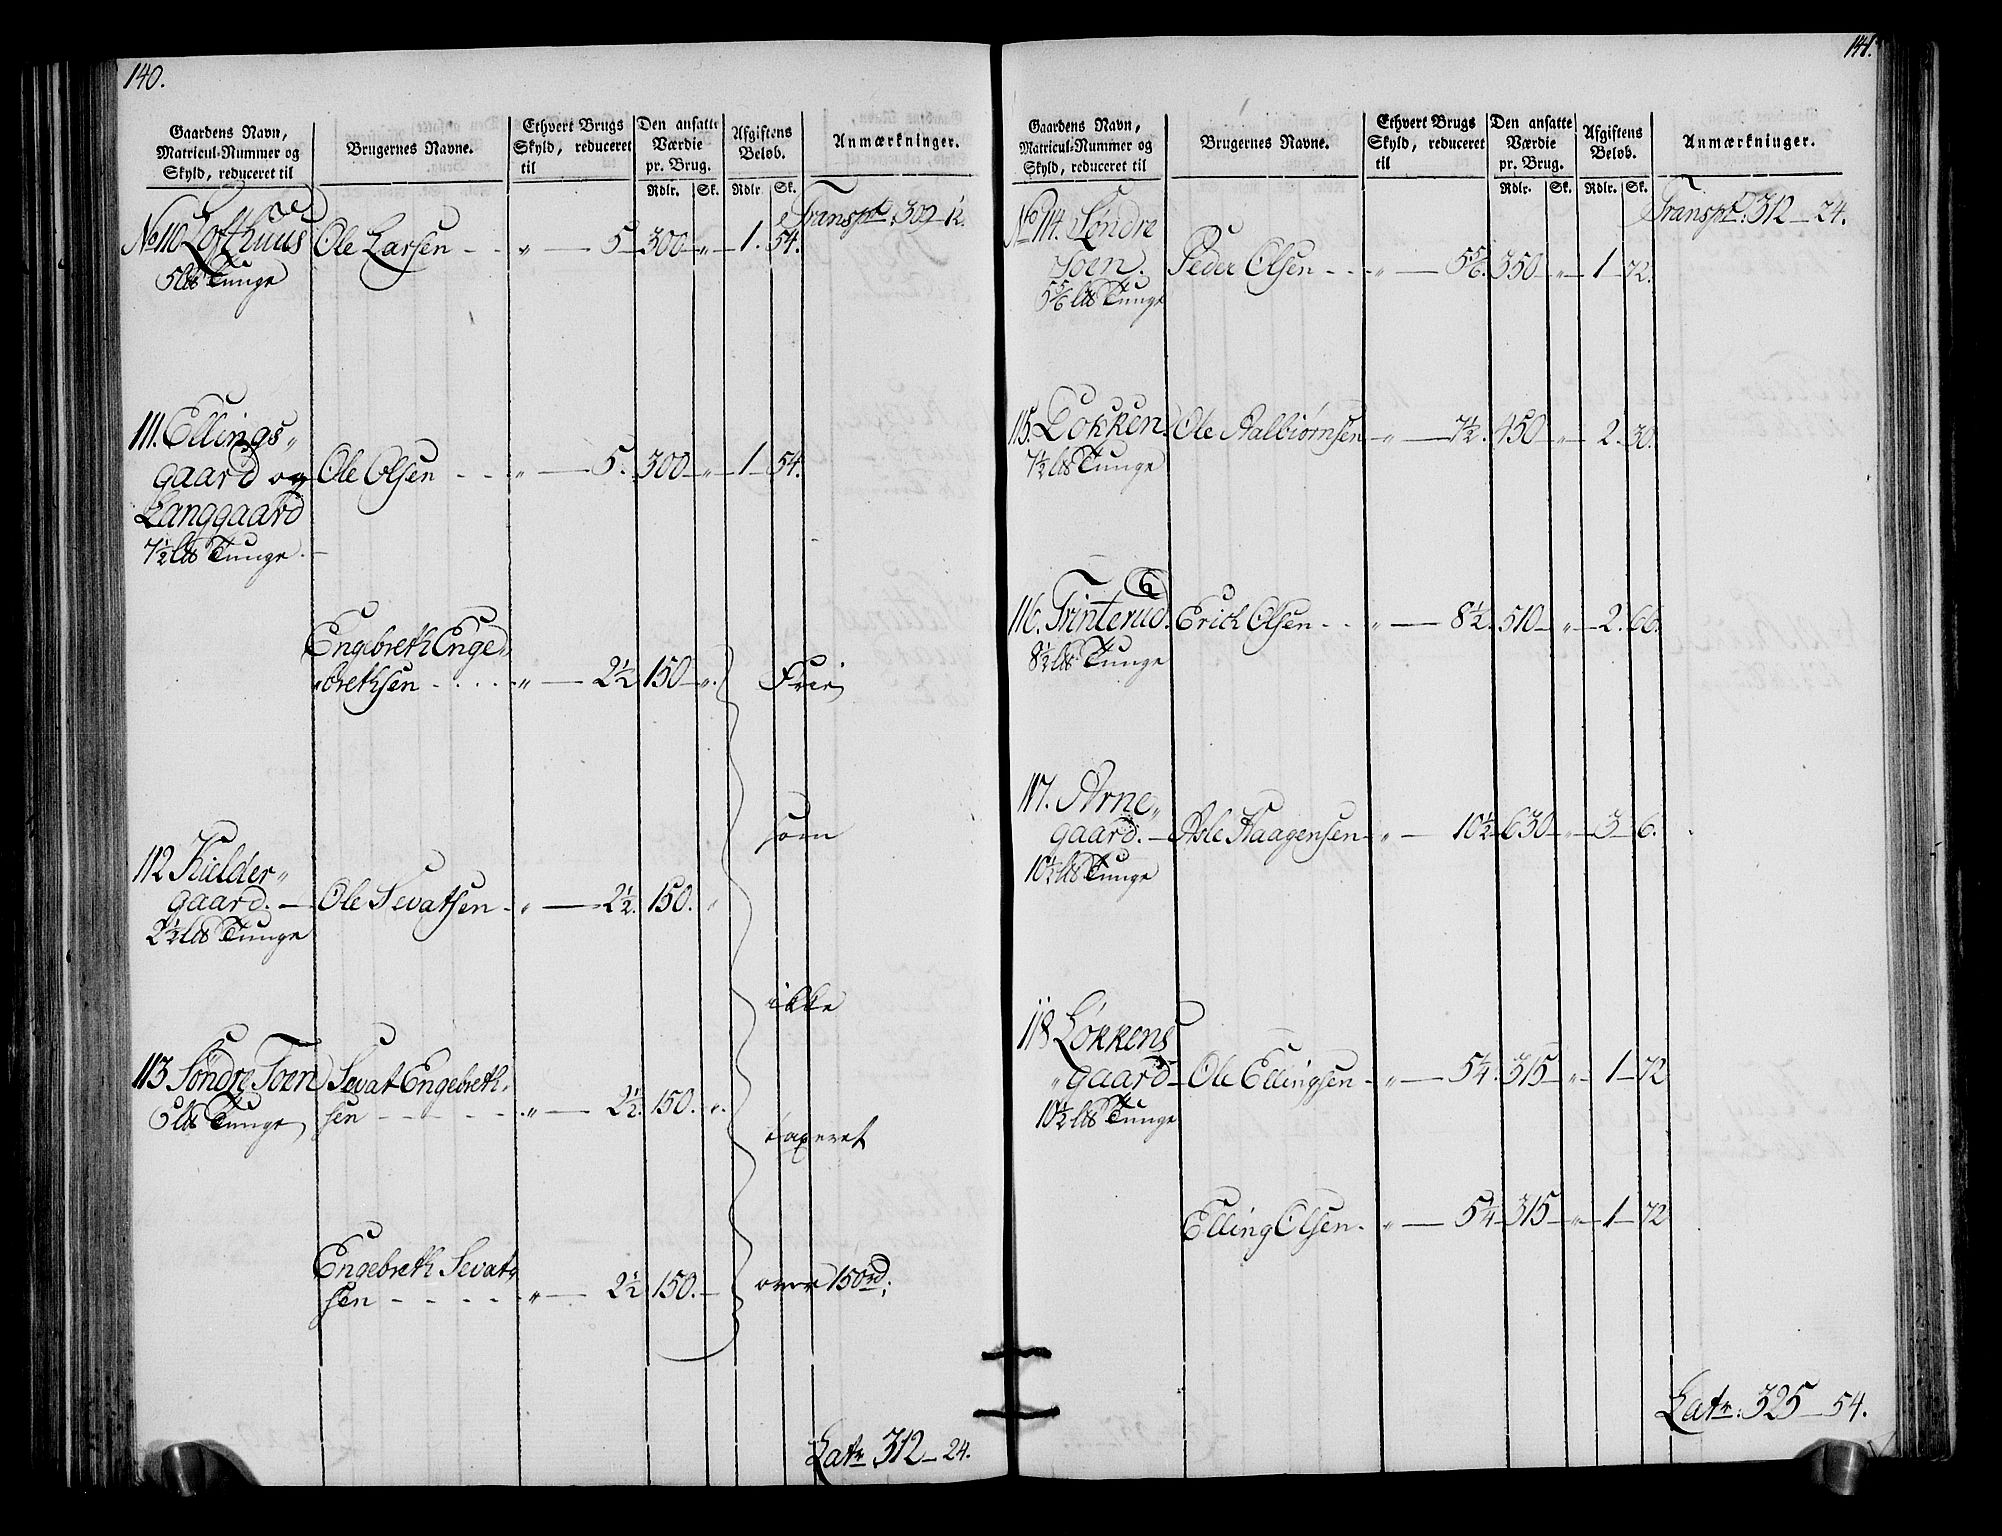 140.
Gaardens Navn, Matricul-Nummer og Skyld, reduceret til
Brugernes Navne.
Ethvert Brugs Skyld, reduceret til
Den ansatte Værdie pr. Brug.
Afgiftens Beløb.
Anmærkninger.
Rdlr. Sk. Rdlr. Sk.
Transpt: 309 – 12.
No 110 Lofthuus Ole Larsen - - „ — 5 – 300 „ – 1. 54.
5 lb Tunge
111. Ellings„
gaard og Ole Olsen - - „ — 5. 300 – „ – 1 – 54.
Langgaard
7½ lb Tunge. –
Engebreth Enge„
„brethsen - - - - „ — 2½ 150 – „ Frie
som
112 Kielder„
gaard. — Ole Sevatsen - „ — 2½. 150. „
2½ lb Tunge
ikke
113 Søndre Toen Sevat Engebreth„
5 lb Tunge sen - - - - - „ — 2½. 150. „
taxeret
Engebreth Sevat„
sen - - - - - „ — 2½ 150. — over 150 rd;
Latr 312 – 24.
141.
Gaardens Navn, Matricul-Nummer og Skyld, reduceret til
Brugernes Navne.
Ethvert Brugs Skyld, reduceret til
Den ansatte Værdie pr. Brug.
Afgiftens Beløb.
Anmærkninger.
Rdlr. Sk. Rdlr. Sk.
Transpt: 312 – 24.
No 114. Søndre
Toen. Peder Olsen - - - „ — 5⅚. 350 „ – 1 – 72.
5⅚ lb Tunge
115. Dokken. Ole Aslbiørnsen - „ — 7½. 450 „ – 2. 30.
7½ lb Tunge
116. Trinterud. Erich Olsen - - - „ — 8½. 510 – „ – 2. 66.
8½ lb Tunge
117. Arne„
gaard. – Asle Haagensen – „ — 10½ 630 – „ – 3 – 6.
10½ lb Tunge
118 Løkkens
„gaard – Ole Ellingsen - „ — 5¼. 315 – „ – 1 – 72
10½ lb Tunge
Elling Olsen - „ — 5¼ 315 – „ – 1 – 72
Latr: 325 – 54.